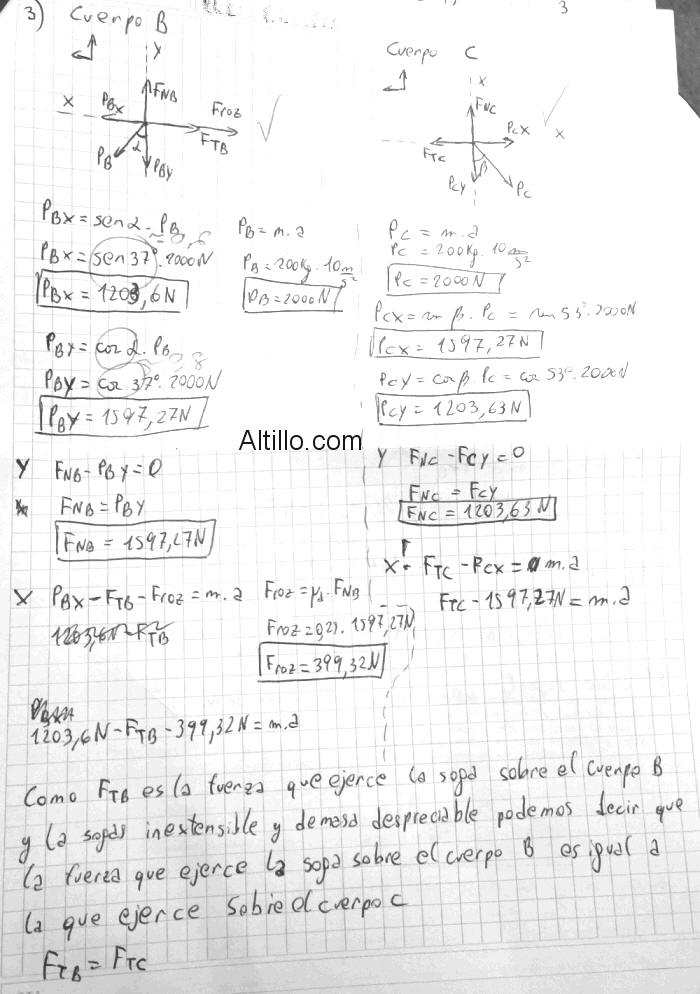 3) Cuerpo B
3
Y
X
PBX
FNB
Froz
FTB
α
PB
PBY
Cuerpo C
X
FNC
PCX
X
FTC
β
PCY
PC
PBX = sen α . PB
0,6
PBX = sen 37° . 2000N
PBX = 1203,6N
PB = m.a
PB = 200Kg . 10 m/s²
PB = 2000N
PBY = cos α . PB
0,8
PBY = cos 37° . 2000N
PBY = 1597,27N
PC = m.a
PC = 200Kg . 10 m/s²
PC = 2000N
PCX = sen β . PC = sen 53° . 2000N
PCX = 1597,27N
PCY = cos β . PC = cos 53° . 2000N
PCY = 1203,63N
Altillo.com
Y FNB - PBY = 0
FNB = PBY
FNB = 1597,27N
Y FNC - FCY = 0
FNC = FCY
FNC = 1203,63N
X PBX - FTB - Froz = m.a
1203,6N - FTB
Froz = μd . FNB
Froz = 0,25 . 1597,27N
Froz = 399,32N
X FTC - PCX = m.a
FTC - 1597,27N = m.a
1203,6N - FTB - 399,32N = m.a
Como FTB es la fuerza que ejerce la soga sobre el cuerpo B
y la sogas inextensible y de masa despreciable podemos decir que
la fuerza que ejerce la soga sobre el cuerpo B es igual a
la que ejerce sobre el cuerpo C
FTB = FTC